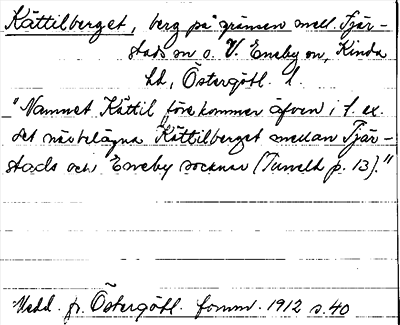 Kättilberget, berg på gränsen mell. Tjär-
stads sn o. V. Eneby sn, Kinda
hd, Östergötl. l.
"Namnet Kättil förekommer äfven i t. ex.
det närbelägna Kättilberget mellan Tjär-
stads och Eneby socknar (Tuneld p. 13)."
Medd. fr. Östergötl. fornm. 1912 s. 40